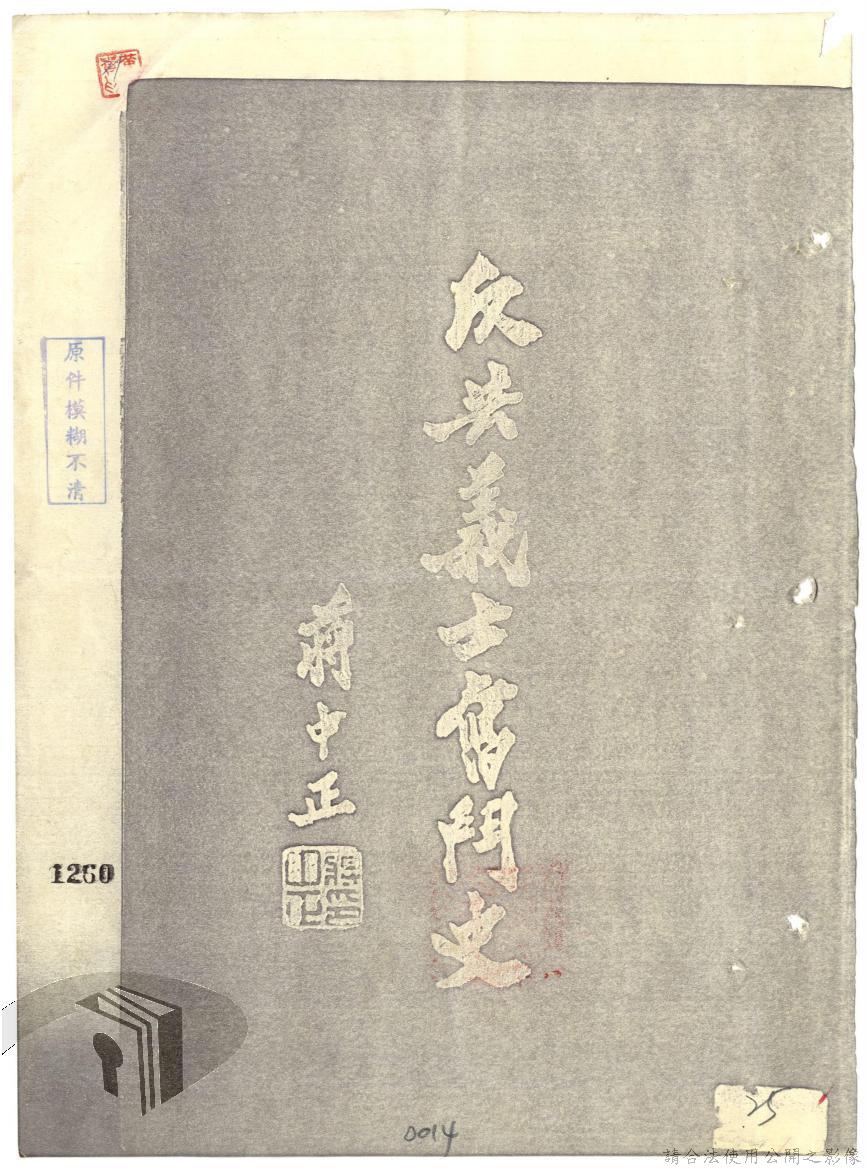 反共義士奮鬥史
蔣中正
原件模糊不清
1260
0014
25
請合法使用公開之影像